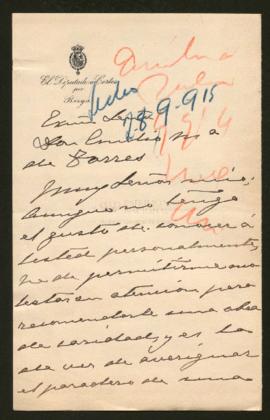 El Diputado a Cortes
por
Borja
18-9-915
Exmo Sr
Don Emilio Mª
de Torres
Muy Señor mio:
Aunque no tengo
el gusto de conocer á
usted personalmente,
he de permitirme mo
lestar su atención para
recomendarle una obra
de caridad, y es la
de ver de averiguar
el paradero de